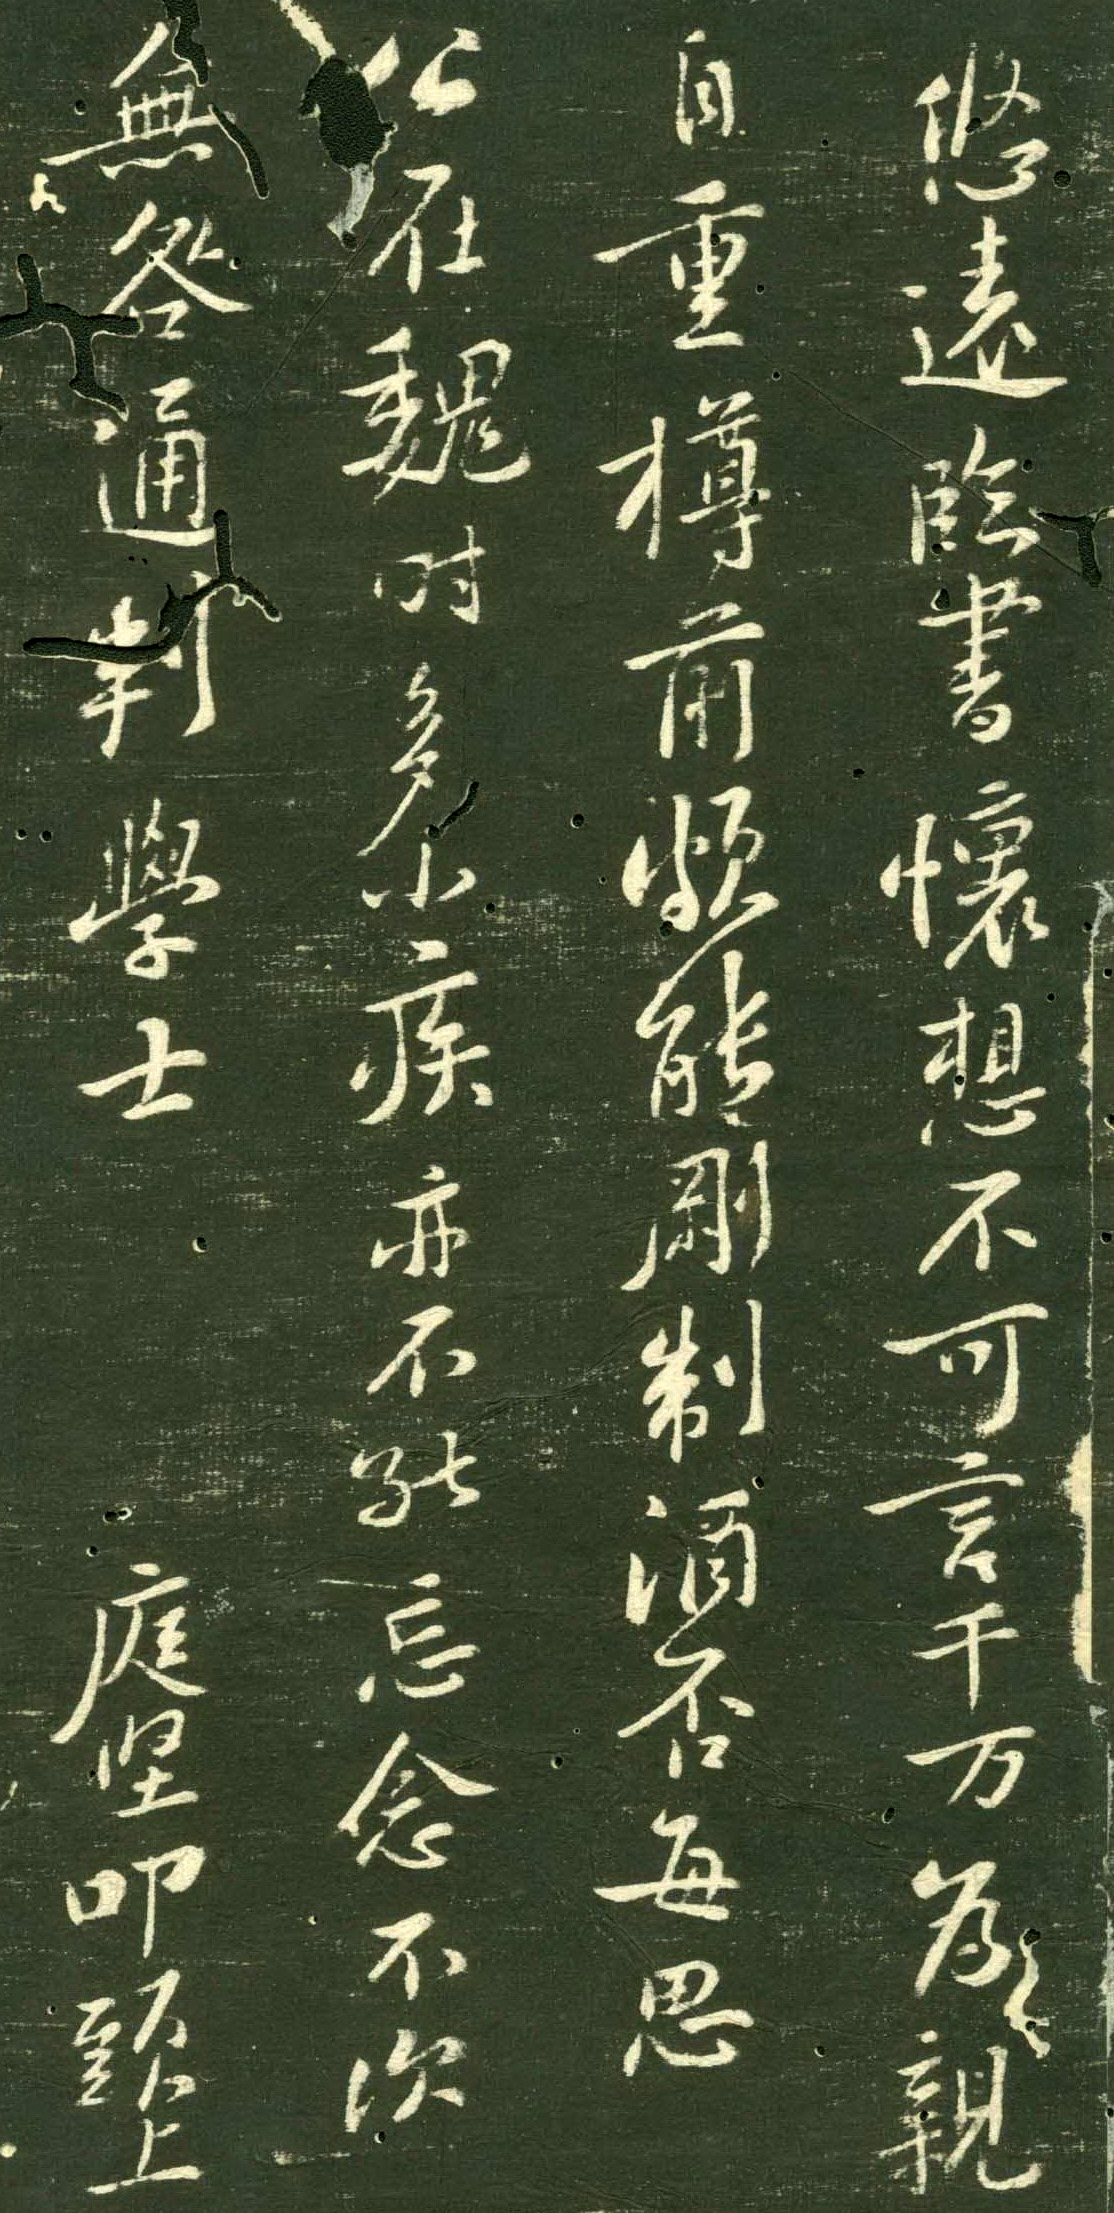 悠遠臨書懷想不可言千万為親
自重樽前頗能剛制酒否每思
公在魏時多小疾亦不能忘念不次
無咎通判學士 庭堅叩頭上